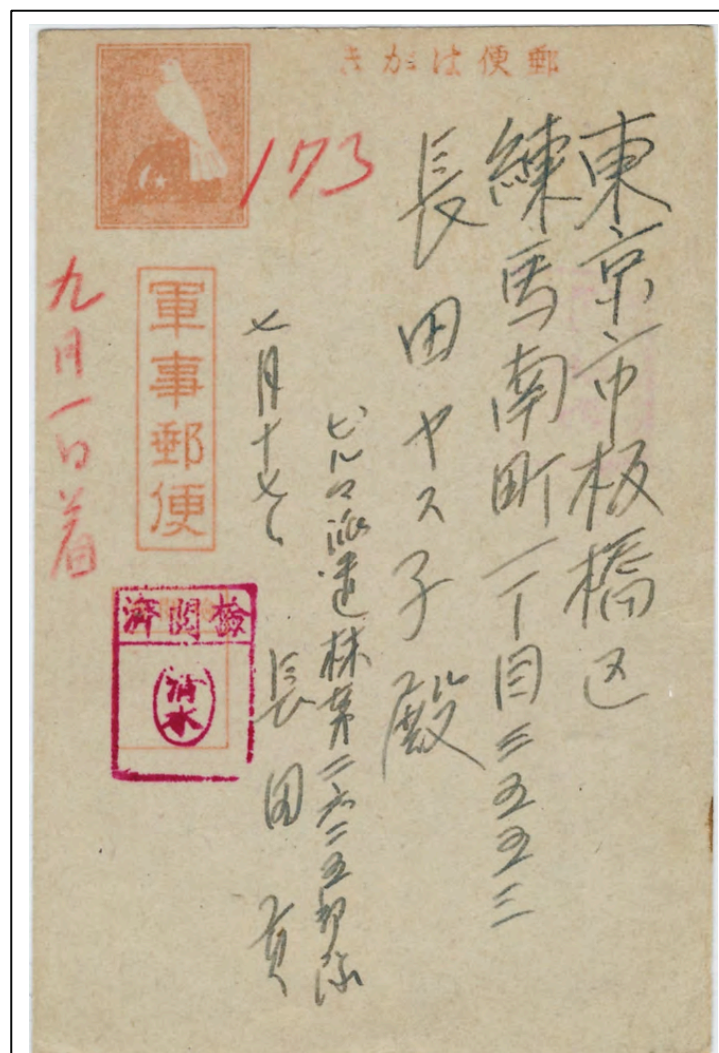 郵便はがき
173
東京市板橋区
練馬南町一丁目三五五三
長田ヤス子殿
ビルマ派遣林第二六二五部隊
長田
七月十七日
軍事郵便
検閲済
清水
九月一日着